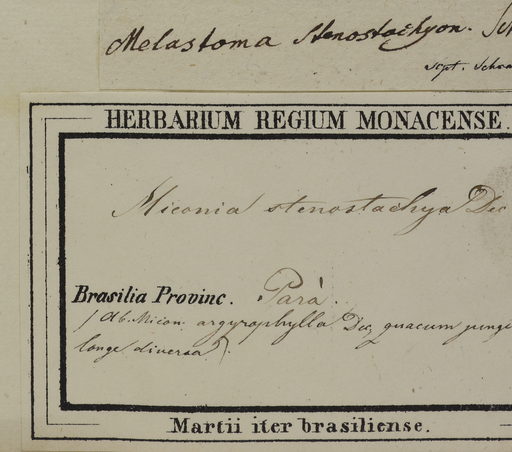 Melastoma Stenostachyon. Sch
scpt. Schra
HERBARIUM REGIUM MONACENSE.
Miconia stenostachya Dec
Brasilia Provinc. Parà.
/ ab. Micon. argyrophylla Dec, quacum jungi
longe diversa /.
Martii iter brasiliense.